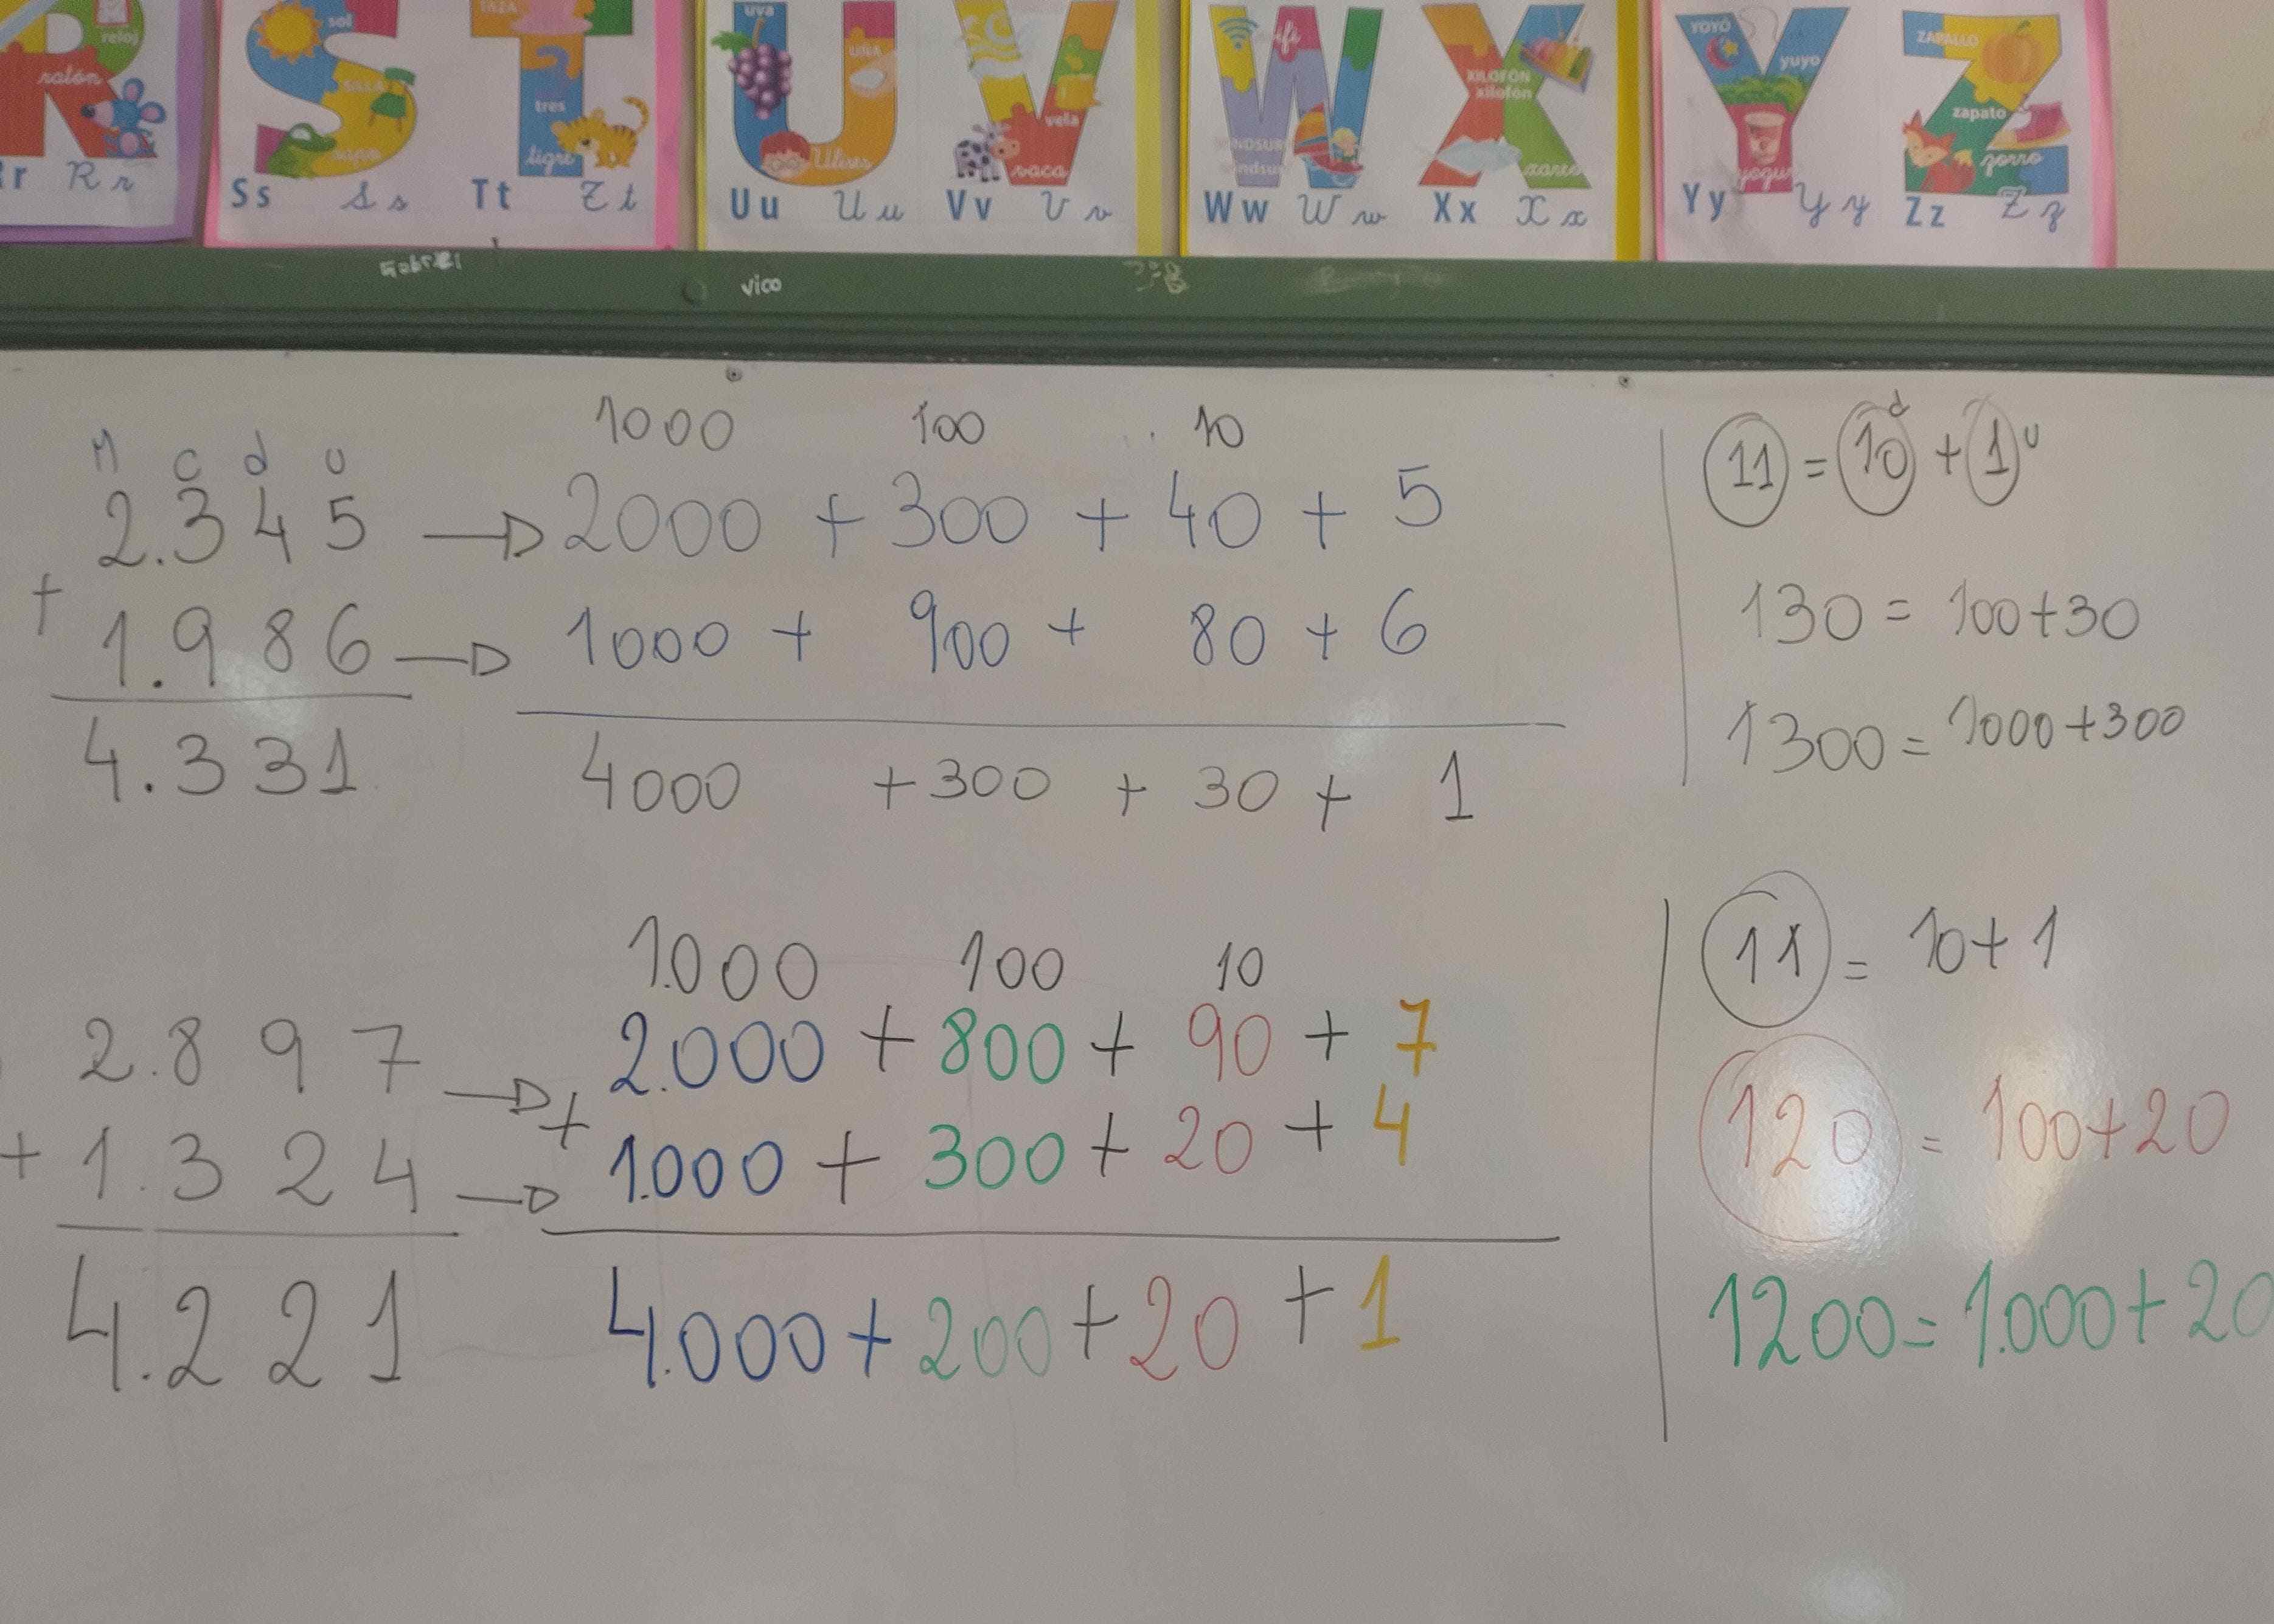 reloj
ratón
r R r
sol
silla
sapo
Ss S s
taza
tres
tigre
Tt T t
uva
uña
Ulises
Uu U u
vela
vaca
Vv V v
Ww W w
XILOFÓN
xilofón
Xx X x
YOYÓ
yuyo
yogur
Yy Y y
ZAPALLO
zapato
zorro
Zz Z z
Gabriel
vico
M c d u
1000 100 10
2.345 → 2000 + 300 + 40 + 5
+ 1.986 → 1000 + 900 + 80 + 6
4.331 4000 + 300 + 30 + 1
11 = 10 d + 1 u
130 = 100+30
1300 = 1000+300
1.000 100 10
2.897 → 2.000 + 800 + 90 + 7
+ 1.324 → + 1.000 + 300 + 20 + 4
4.221 4.000 + 200 + 20 + 1
11 = 10+1
120 = 100+20
1200 = 1.000+20